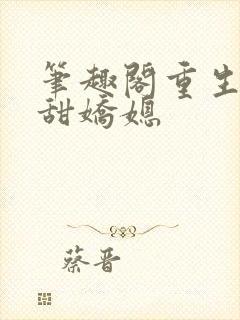 筆趣閣重生
甜嬌媳
蔡晋